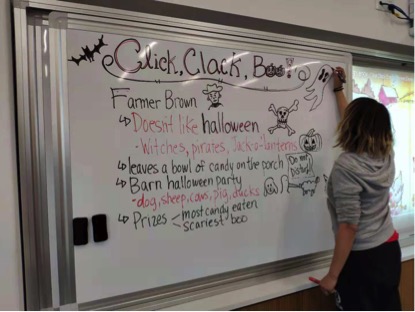 Click, Clack, Boo!
Farmer Brown
↳ Doesn't like halloween
- Witches, pirates, Jack-o-lanterns
↳ leaves a bowl of candy on the porch
Do not
↳ Barn halloween party
- dog, sheep, cows, pig, ducks
↳ Prizes < most candy eaten
scariest boo